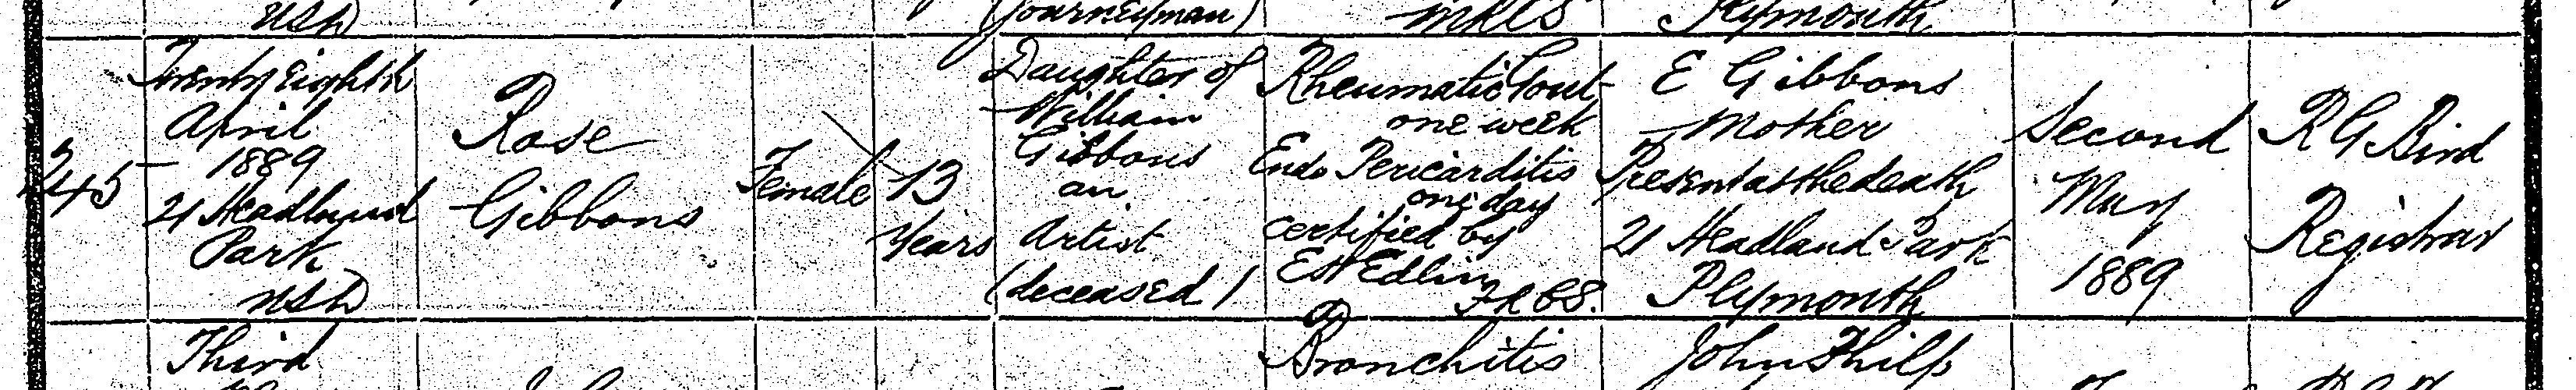 USD
(Journeyman)
MRCS
Plymouth
245
Twenty Eighth
April
1889
21 Headland
Park
USD
Rose
Gibbons
Female
13
Years
Daughter of
William
Gibbons
an
Artist
(deceased)
Rheumatic Gout
one week
Endo Pericarditis
one day
Certified by
Edlin
FRCS.
E Gibbons
Mother
Present at the death
21 Headland Park
Plymouth
Second
May
1889
R G Bird
Registrar
Third
Bronchitis
John Philp